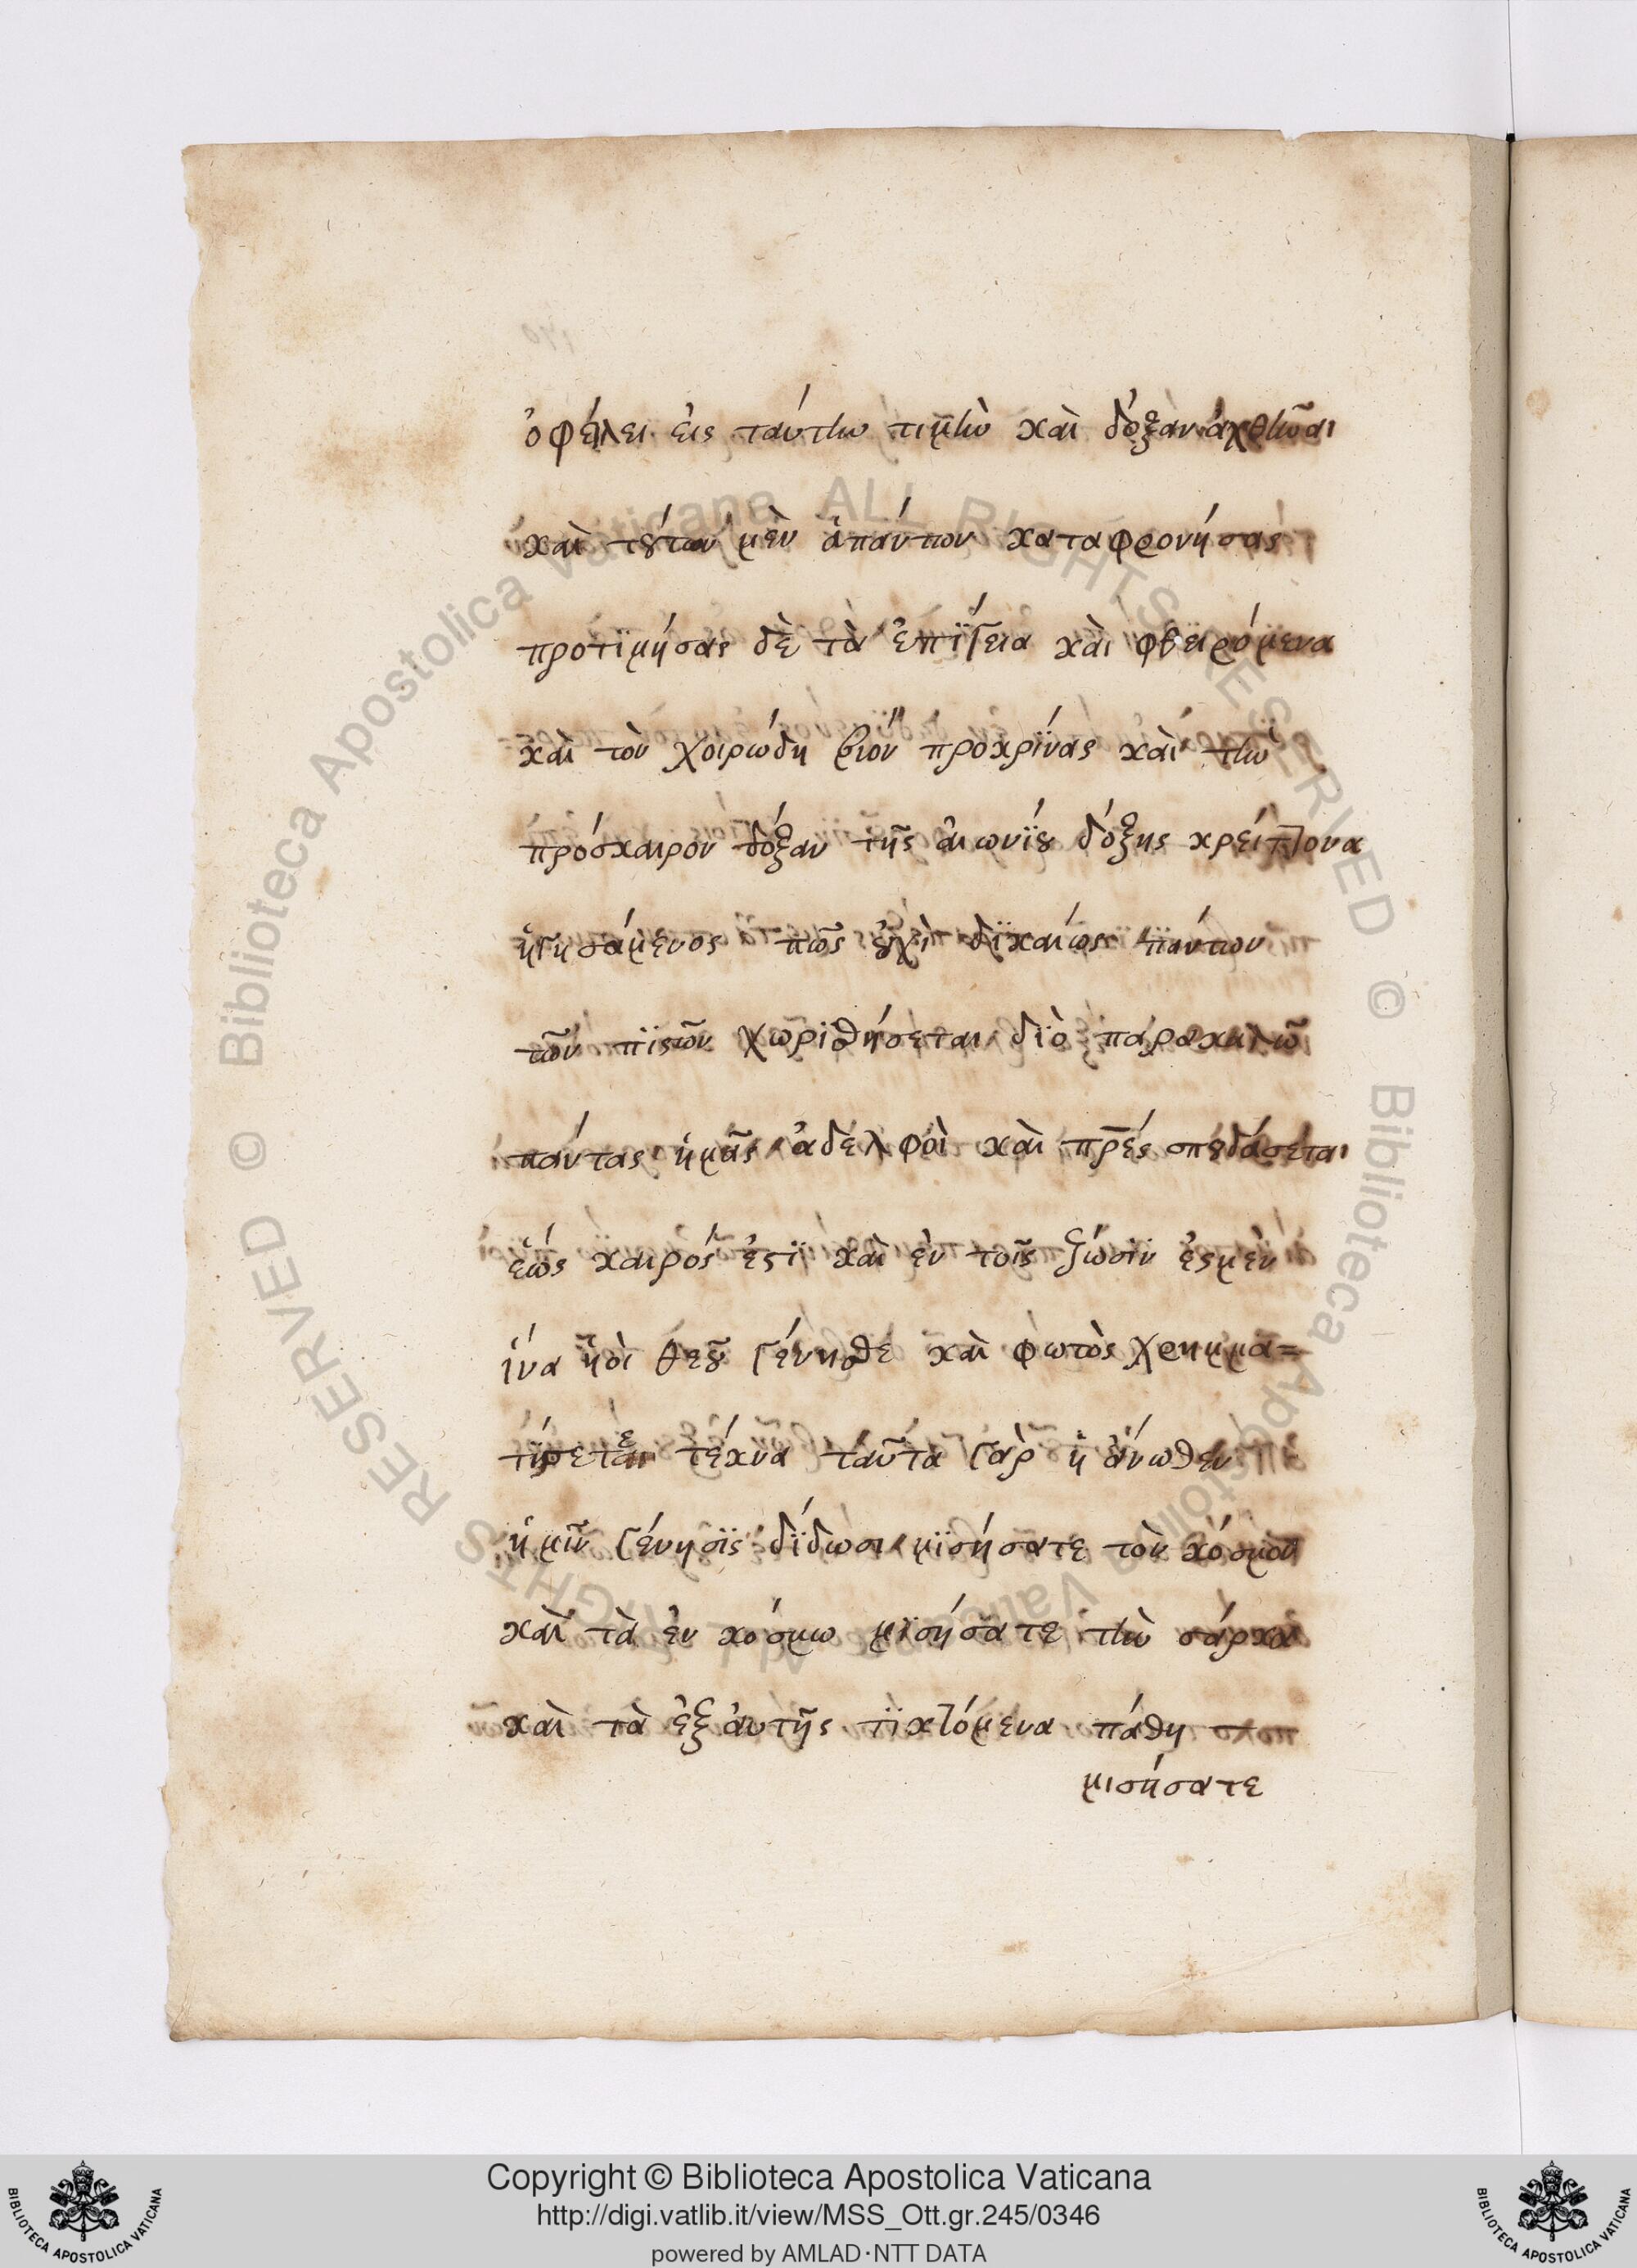 ὀφείλει εἰς ταύτην τιμὴν καὶ δόξαν ἀχθῆναι
καὶ τούτων μὲν ἁπάντων καταφρονήσας
προτϊμήσας δὲ τὰ ἐπΐγεια καὶ φθειρόμενα
καὶ τὸν χοιρώδη βίον προκρίνας καὶ τὴν
πρόσκαιρον δόξαν τῆς αἰωνΐου δόξης κρείττονα
ἡγησάμενος πῶς οὐχὶ δϊκαίως πάντων
τῶν πϊστῶν χωρισθήσεται διὸ παρακαλῶ
πάντας ἡμᾶς ἀδελφοὶ καὶ πρ̅ες σπουδάσεται
ἑώς καιρός ἐστϊ καὶ ἐν τοῖς ζώσϊν ἐσμὲν
ἵνα ϋἱοὶ θεοῦ γένησθε καὶ φωτὸς χρημμα=
τήσεται τέκνα ταῦτα γὰρ ἡ ἄνωθεν
ἡμῖν γένησϊς δΐδωσι μϊσήσατε τὸν κόσμον
καὶ τὰ ἐν κόσμω μϊσήσατε τὴν σάρκα
καὶ τὰ ἐξ αὐτῆς τϊκτόμενα πάθη
μισήσατε
Copyright © Biblioteca Apostolica Vaticana
http://digi.vatlib.it/view/MSS_Ott.gr.245/0346
powered by AMLAD·NTT DATA
BIBLIOTECA APOSTOLICA VATICANA
BIBLIOTECA APOSTOLICA VATICANA
© Biblioteca Apostolica Vaticana ALL RIGHTS RESERVED
© Biblioteca Apostolica Vaticana ALL RIGHTS RESERVED